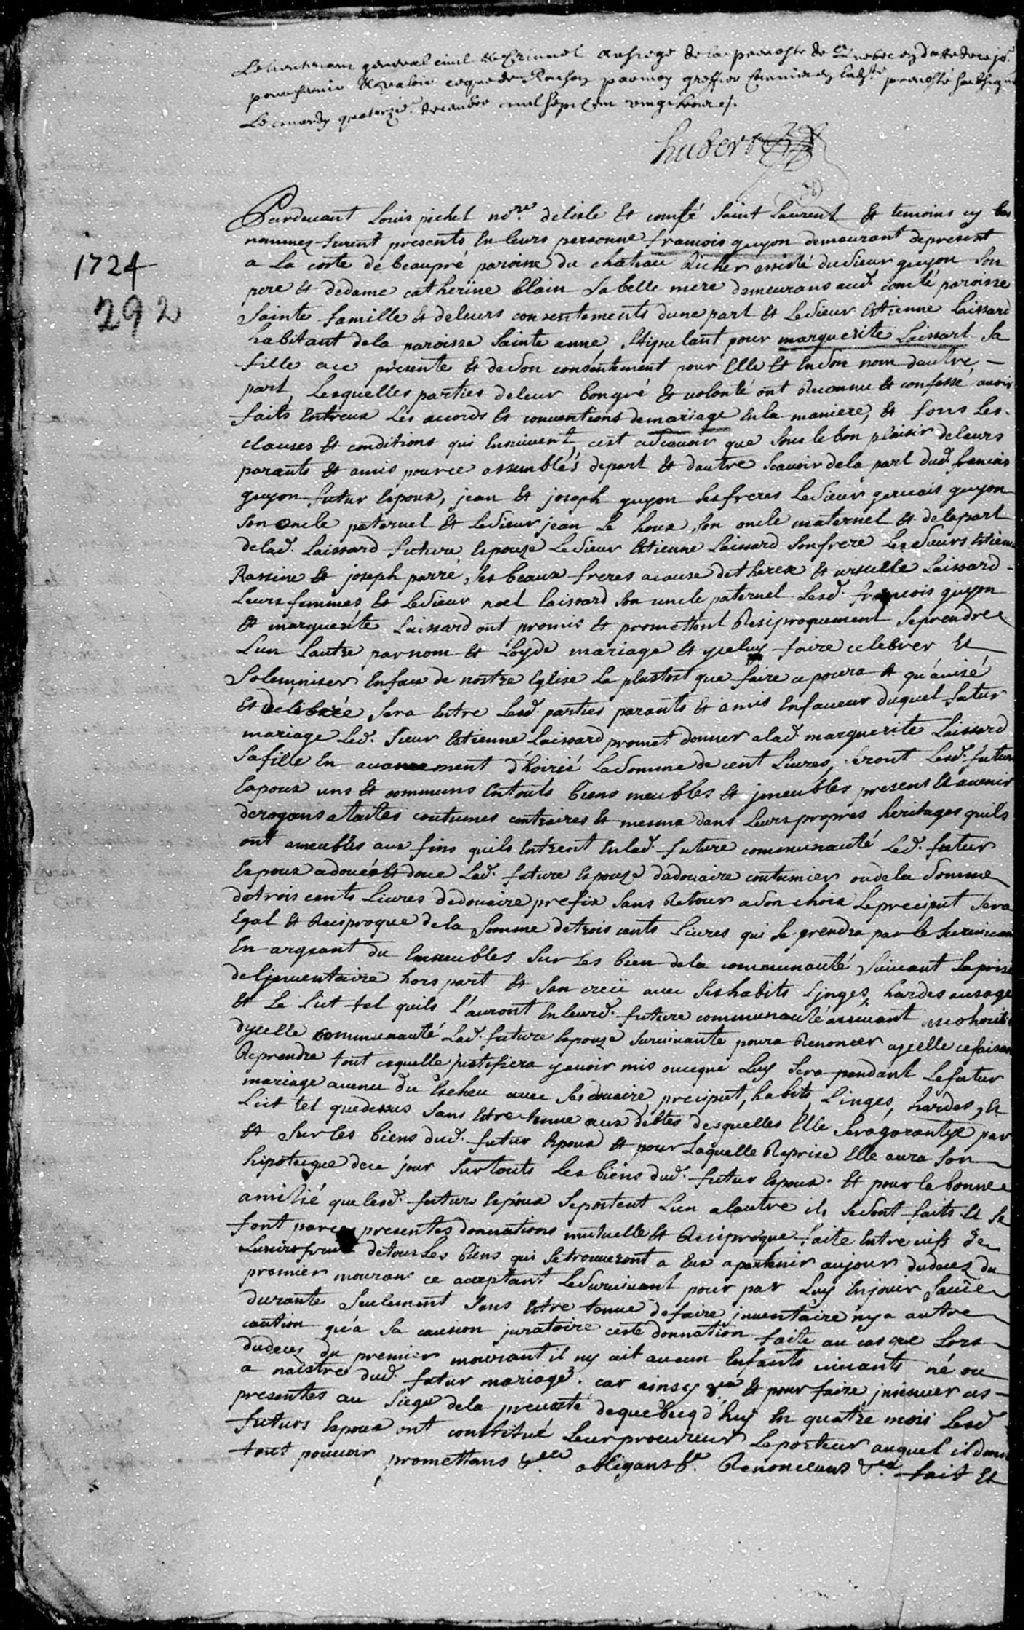 Lieutenant general civil et criminel au siege de la prevosté de Quebec en datte de ce jo.
pour servir et valoir ce que de Raison par moy greffier en lad. prevosté
Le mardy quatorze decembre mil sept cent vingt
hubert
1724
292
Pardevant Louis pichet nore. delisle et comté Saint Laurent et temoins cy bas
nommez furent presents en leurs personne francois guyon demeurant de present
a La coste de beaupré paroisse du chateau Richer assisté du Sieur guyon Son
pere et de dame catherine blain Sa belle mere demeurans aud. comté paroisse
Sainte famille et de leurs consentements dune part et Le Sieur Estienne Laissard
habitant de la paroisse Sainte anne Stipulant pour marguerite Laissart Sa
fille a ce présente et de Son consentement pour Elle et En Son nom dautre
part Lesquelles parties de leur bongré et volonté ont Reconnu et confessé avoir
faits Entreux Les accords et conventions de mariage En la maniere, et Sous Les
clauses et conditions qui Ensuivent cest ascavoir que Sous le bon plaisir de leurs
parants et amis pour ce assemblés depart et dautre Scavoir de la part dud. francois
guyon futur Epoux, jean et joseph guyon Ses freres Le Sieur gervais guyon
Son oncle paternel et Le Sieur jean Le houx Son oncle maternel et de la part
de lad. Laissard future Epouze Le Sieur Estienne Laissard Son frere Les Sieurs Estienne
Rassine et joseph parré, Ses beaux freres acause de therese et ursulle Laissard
Leurs femmes et Le Sieur noel Laissard Son uncle paternel Lesd. francois guyon
et marguerite Laissard ont promis et promettent Resiproquement Se prendre
Lun Lautre par nom et Loyde mariage et yceluy faire celebrer et
Solemniser En face de nostre Eglise Le plustost que faire ce poura et qu'avisé
et deliberé Sera Entre Lesd. parties parants et amis En faveur duquel futur
mariage Led. Sieur Estienne Laissard promet donner a lad. marguerite Laissard
Sa fille En avancement d'hoirie La Somme de cent Livres, Seront Lesd. futurs
Epoux uns et communs En touts biens meubles et jmeubles present et avenir
dorogans a toutes coutumes contraires et mesme dans Leurs propres heritages quils
ont ameublis aux fins quils Entrent En lad. future communauté Led. futur
Epoux a doué et doue Lad. future Epouze dadouaire coutumier ou de la Somme
de trois cents Livres dedouaire prefix Sans Retour a Son choix Le preciput Sera
Egal et Reciproque de la Somme de trois cents Livres qui Se prendra par le Survivant
En argeant ou En meubles Sur Les bien de la communauté Suivant La prise
de Ljnventaire hors part et San creüe avec Ses habits Linges hardes a usage
et Le Lict tel quils L'auront En leurd. future communauté
dycelle communauté Lad. future Epouze Survivante poura Renoncer a ycelle ce faisan
Reprendre tout ce quelle justifiera y avoir mis ou ce qui Luy Sera pendant Le futur
mariage avenu ou Escheu avec Ses douaire, preciput, habits, Linges, hardes, et
Lict tel que dessus Sans Estre tenue aux debtes desquelles Elle Sera garantye par
et Sur Les biens dud. futur Epoux et pour Laquelle Reprise Elle aura Son
hipotheque de ce jour Sur touts Les biens dud. futur Epoux. Et pour la bonne
amitié que Lesd. futurs Epoux Se portent Lun a Lautre ils Se Sont faits et Se
font par ces presentes donnations mutuelle et Reciproque faite Entre vifs de
de tous Les biens qui Se trouveront a Eux apartenir au jour du deces du
premier mourant ce aceptant Le Survivant pour par Luy En jouir Sa vie
durante Seulement Sans Estre tenue de faire jnventaire ny a autre
caution qu'a Sa caution juratoire cette donnation faite au cas que Lors
du deces du premier mourant il ny ait aucun Enfants vivants né ou
a naistre dud. futur mariage. car ainsy &a et pour faire jnsinuer ces
presentes au Siege de la prevosté de quebecq d'huy En quatre mois Lesd.
futurs Epoux ont constitué Leur procureur Le porteur auquel il donne
tout pouvoir promettans &a obligeans &a Renonceans &a fait et